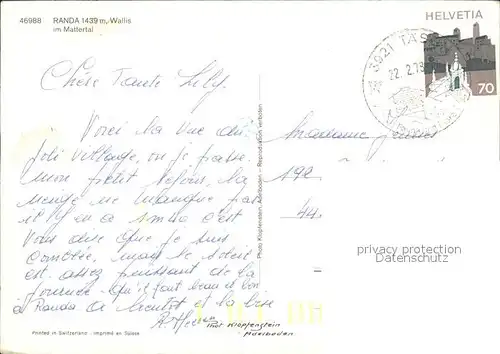 46988 RANDA 1439 m, Wallis
im Mattertal
HELVETIA
70
3921 TÄSCH
22.2.79
Chère Tante Lily.
Voici la vue du
joli village, où je passe
mon petit séjour, la
neige ne manque pas
il y en a 1m80 c'est
vous dire que je suis
comblée, mais le soleil
est assez puissant de la
journée qu'il fait beau et bon
à Randa à bientôt et la bise
Madame
192
44.
Photo Klopfenstein, Adelboden – Reproduktion verboten
privacy protection
Datenschutz
Printed in Switzerland - Imprimé en Suisse
Phot Klopfenstein
Adelboden